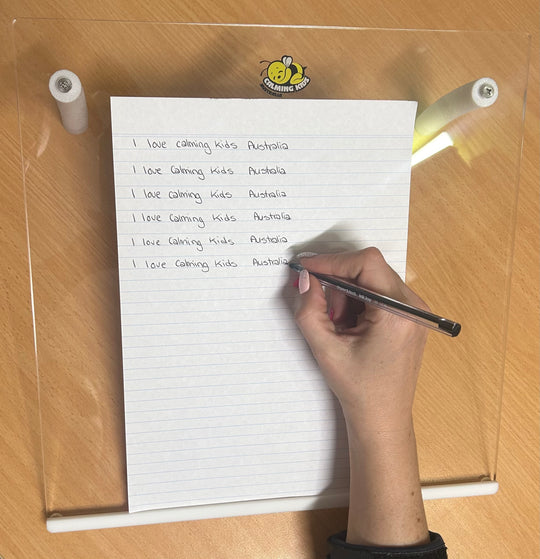 CALMING KIDS
I love Calming Kids Australia
I love Calming Kids Australia
I love Calming Kids Australia
I love Calming Kids Australia
I love Calming Kids Australia
I love Calming Kids Australia